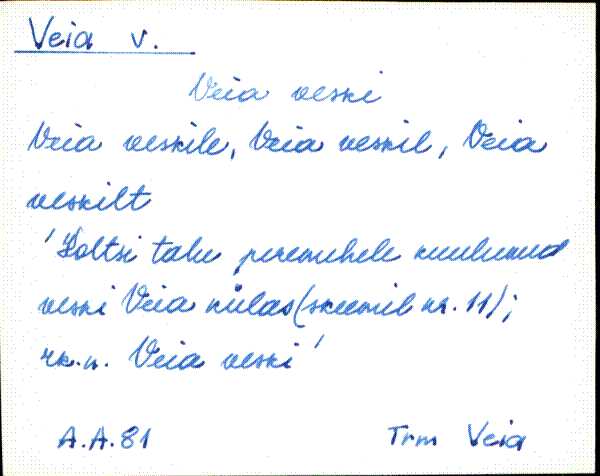 Veia v.
Veia veski
Veia veskile, Veia veskil, Veia
veskilt
' Soltsi talu peremehele kuulunud
veski Veia külas (skeemil nr. 11);
rk.n. Veia veski '
A.A.81 Trm Veia